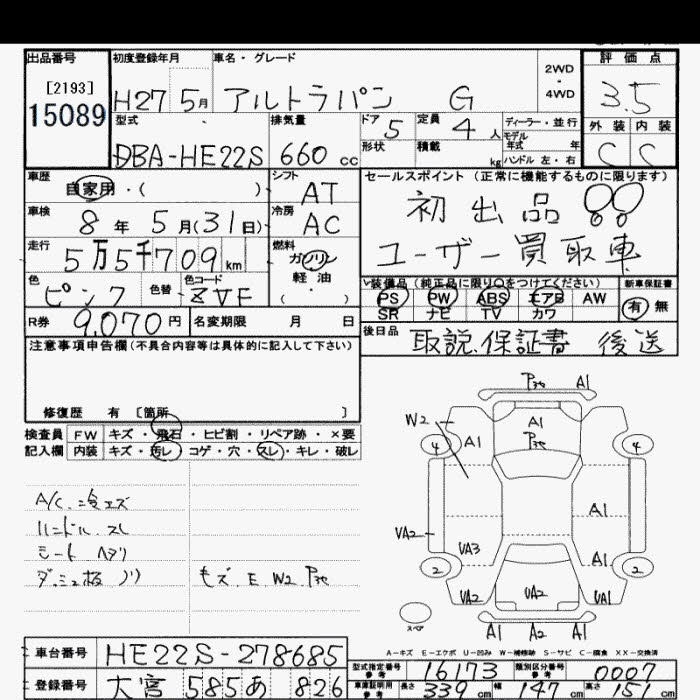 出品番号 初度登録年月 車名・グレード 2WD・4WD 評価点
[2193] 15089 H27 5月 アルトラパン G 3.5
型式 排気量 ドア 定員 ディーラー・並行 外装 内装
DBA-HE22S 660cc 5 4人 モデル年式 年 C C
形状 積載 kg ハンドル 左・右
車歴 シフト セールスポイント(正常に機能するものに限ります)
自家用・( ) AT 初出品
車検 冷房
8年5月(31日) AC ユーザー買取車
走行 燃料
5万5千709km ガソリン 軽油 ( )
色 色替 色コード 装備品(純正品に限り○をつけてください) 新車保証書
ピンク ZVF PS PW ABS エアB AW 有 無
SR ナビ TV カワ
R券 9,070円 名変期限 月 日 後日品 取説、保証書 後送
注意事項申告欄(不具合内容等は具体的に記入して下さい)
修復歴 有 [箇所 ]
検査員 FW キズ・飛石・ヒビ割・リペア跡・×要
記入欄 内装 キズ・汚レ・コゲ・穴・スレ・キレ・破レ
A/C
ハンドル スレ
シート
キズ E W2
A1
W2 A1 A1
4 4
A1
VA2 VA3 A1
2 2
VA2 UA2 VA1
スペア
A1 A2 A1
A-キズ E-エクボ U-凹み W-補修跡 S-サビ C-腐食 XX-交換済
車台番号 HE22S-278685 型式指定番号 参考 16173 類別区分番号 参考 0007
登録番号 大宮 585 あ 826 車庫証明用 参考 長さ 339cm 幅 147cm 高さ 151cm